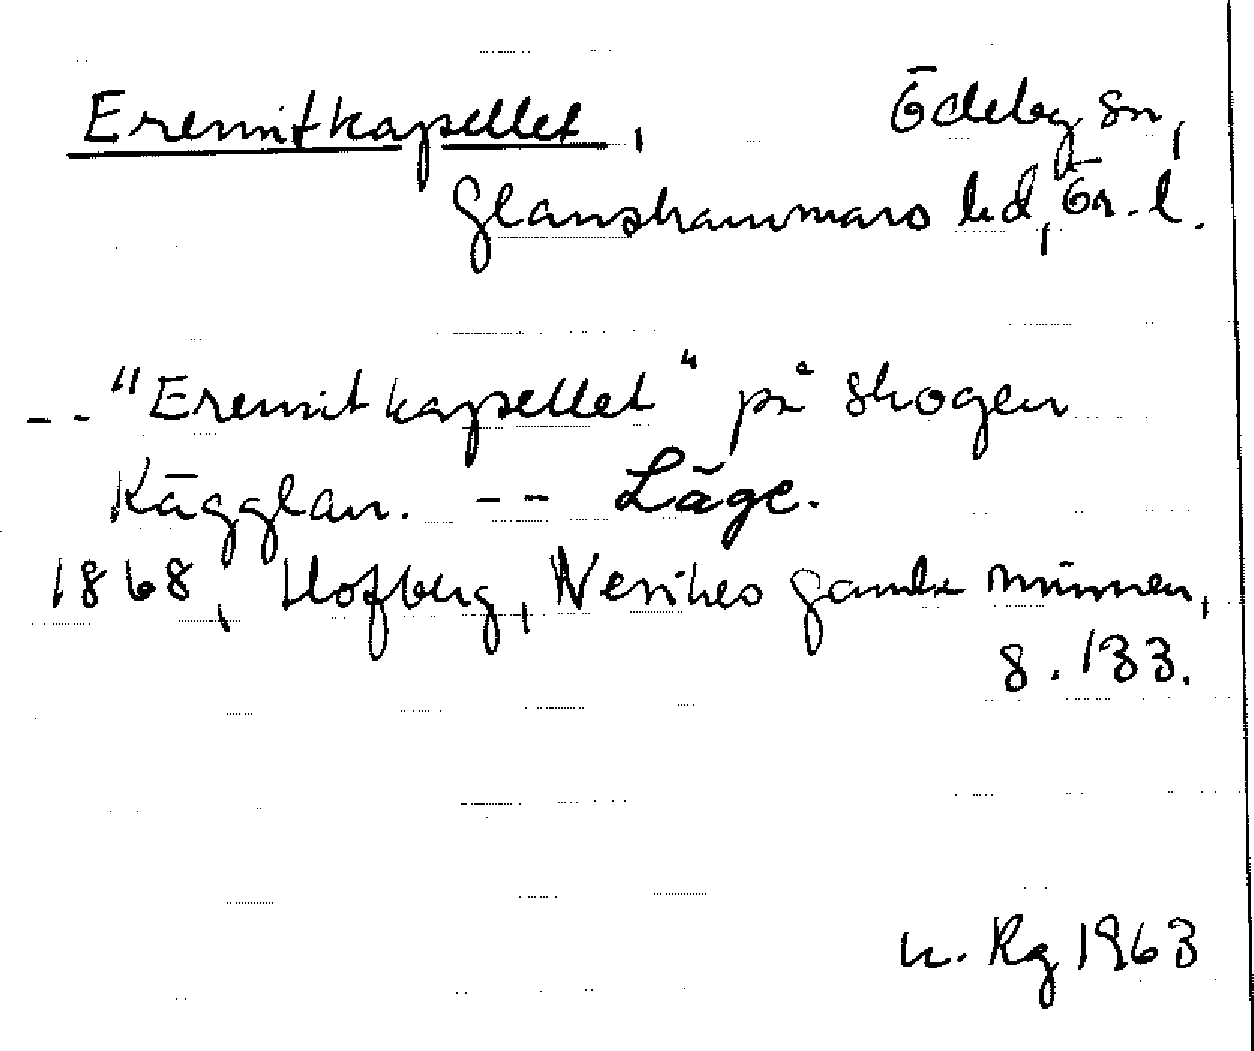 Eremitkapellet, Ödeby sn,
Glanshammars hd, Ör. l.
-- "Eremitkapellet" på skogen
Kägglan. -- Läge.
1868, Hofberg, Nerikes gamla minnen,
s. 133.
u. Rg 1963